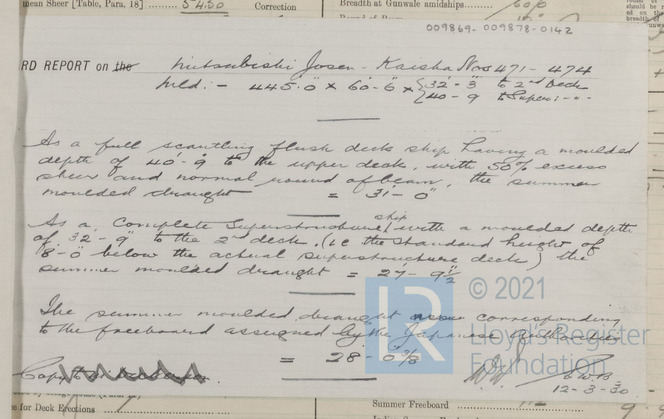 mean Sheer [Table, Para. 18] 54.50
Correction
Breadth at Gunwale amidships
009869-009878-0142
RD REPORT on the Mitsubishi Zosen-Kaisha Nos 471-474
Mld:- 445'.0" x 60'-6" x { 32'-3" to 2nd Deck
40-9 to Super:--
As a full scantling flush deck ship having a moulded
depth of 40'-9" to the upper deck, with 50% excess
sheer and normal round of beam, the summer
moulded draught = 31'-0"
As a Complete Superstructure ship with a moulded depth
of 32'-9" to the 2nd deck, (i.e. the standard height of
8'-0" below the actual superstructure deck) the
summer moulded draught = 27'-9½"
The summer moulded draught now corresponding
to the freeboard assigned by the Japanese
= 28-0⅞
Copy to
12-3-30
© 2021
LR
Lloyd's Register
Foundation
for Deck Erections
Summer Freeboard